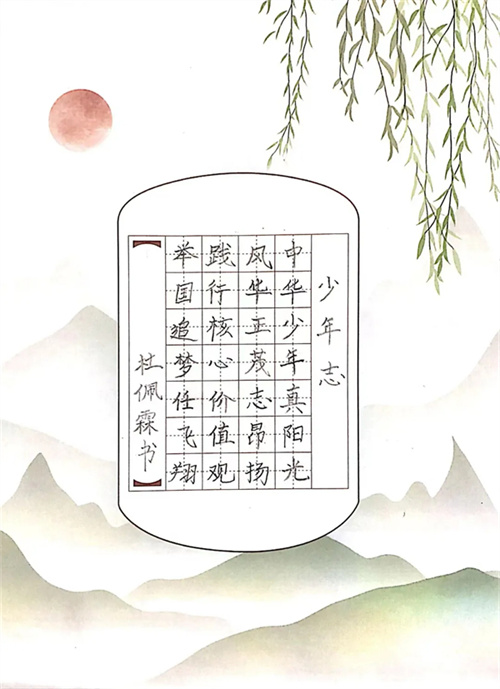 少年志
中华少年真阳光
风华正茂志昂扬
践行核心价值观
举国追梦任飞翔
杜佩霖书